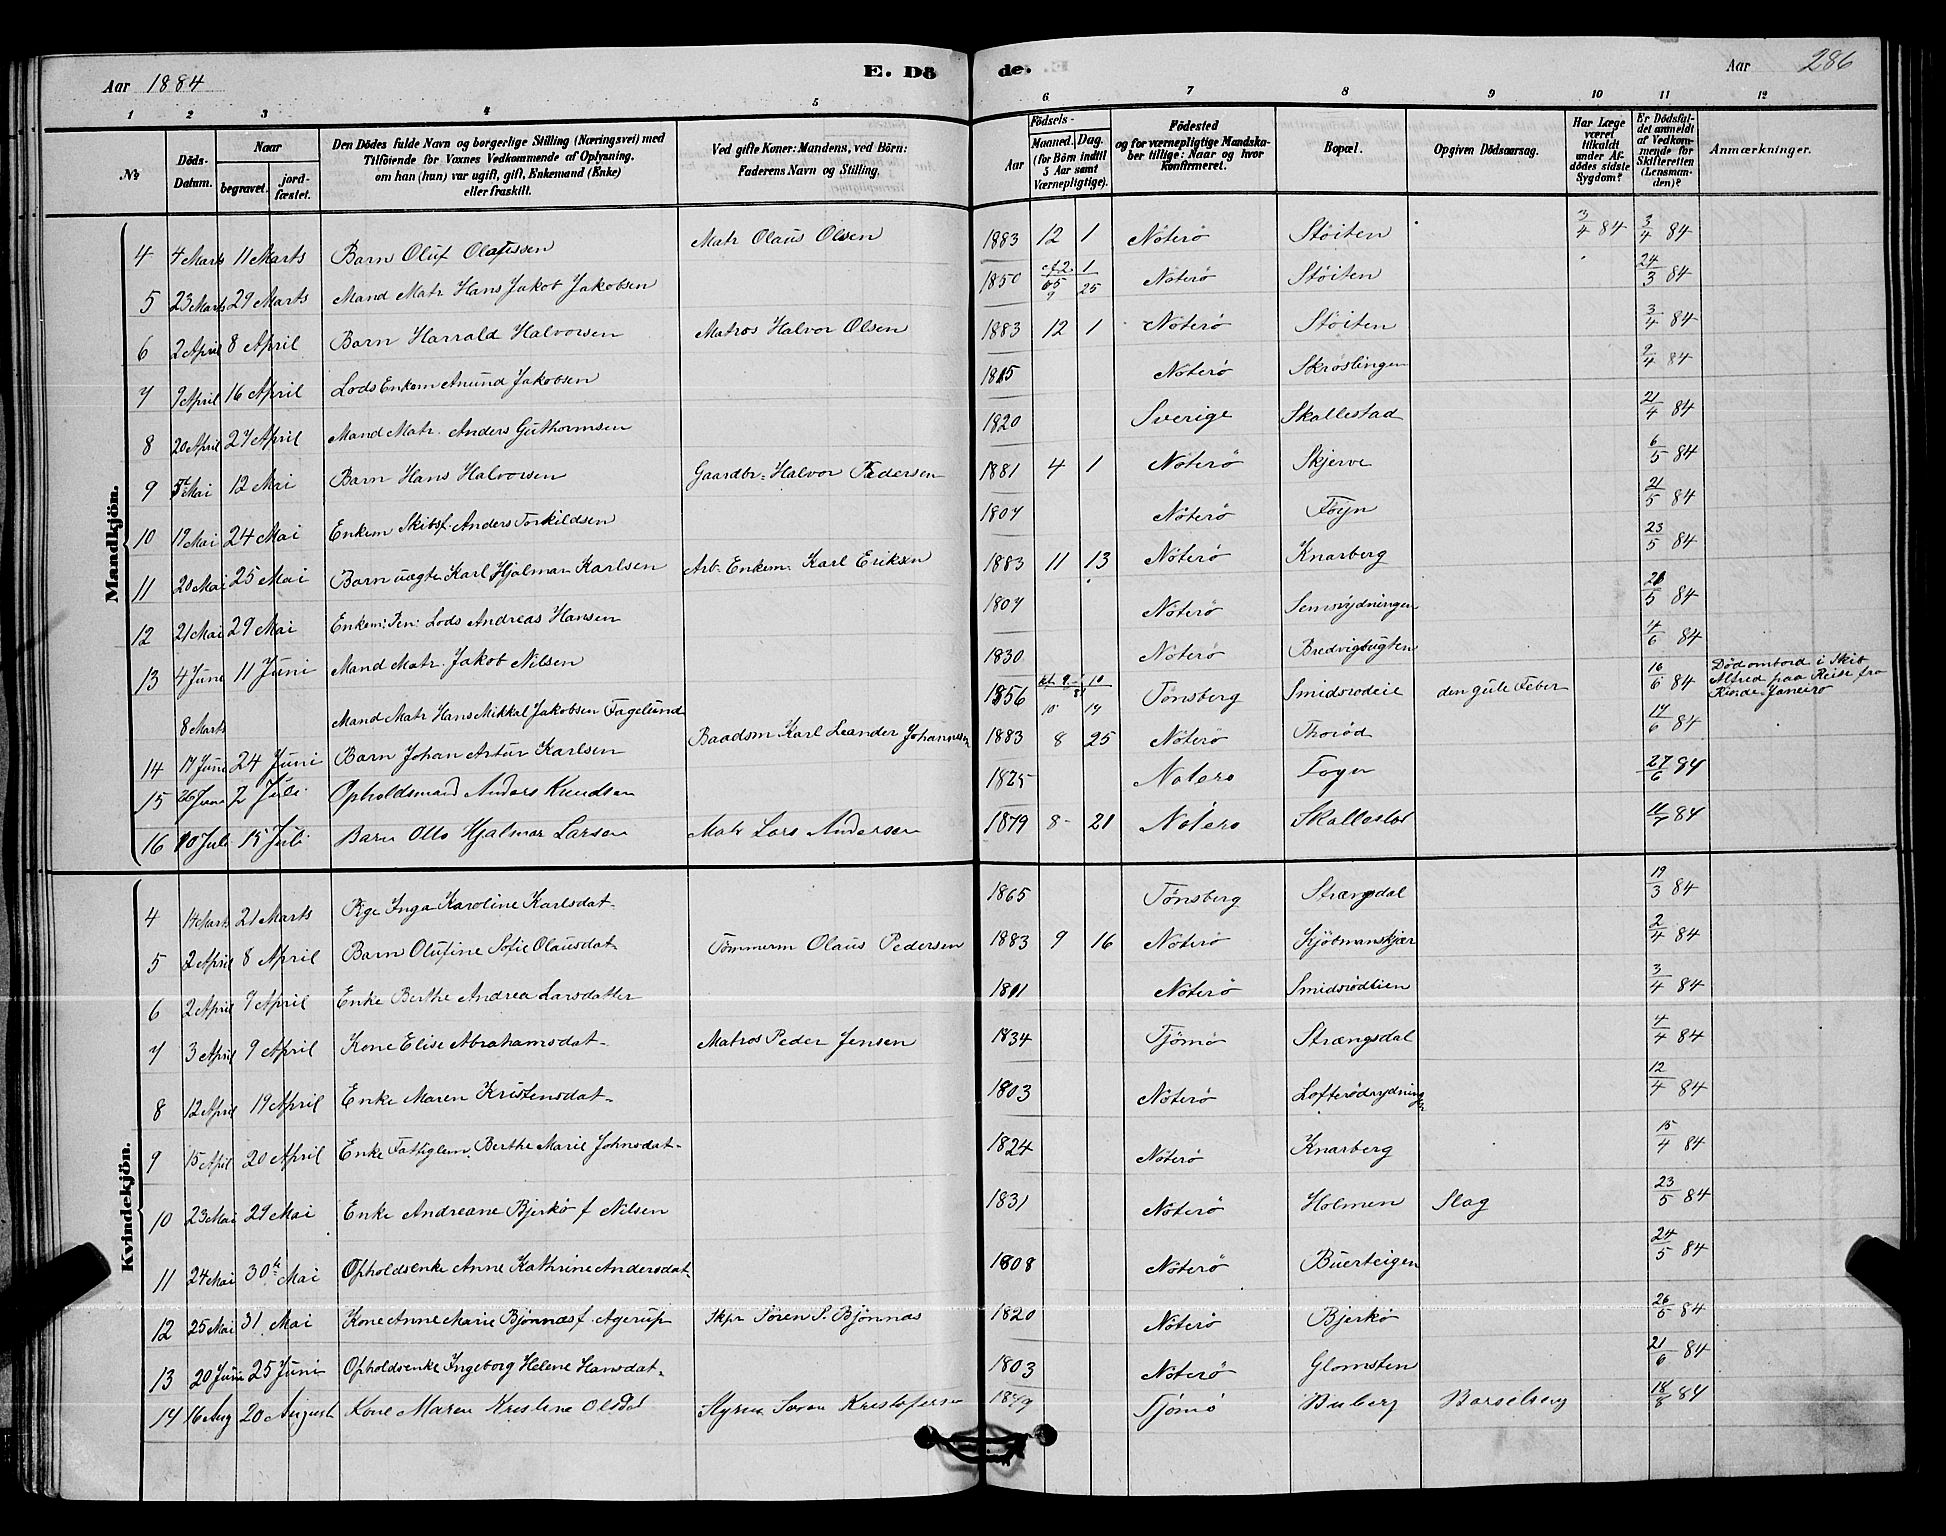 Aar 1884 E. Dö de. Aar 286
1 2 3 4 5 6 7 8 9 10 11 12
No
Döds-Datum.
Naar
begravet.
jord-fæstet.
Den Dödes fulde Navn og borgerlige Stilling (Næringsvei) med
Tilföiende for Voxnes Vedkommende af Oplysning,
om han (hun) var ugift, gift, Enkemand (Enke)
eller fraskilt.
Ved gifte Koner: Mandens, ved Börn:
Faderens Navn og Stilling.
Födsels-
Aar
Maaned. Dag.
(for Börn indtil
5 Aar samt
Værnepligtige).
Födested
og for værnepligtige Mandska-
ber tillige: Naar og hvor
konfirmeret.
Bopæl.
Opgiven Dödsaarsag.
Har Læge
været
tilkaldt
under Af-
dödes sidste
Sygdom?
Er Dödsfal-
det anmeldt
af Vedkom-
mende for
Skifteretten
(Lensman-
den)?
Anmærkninger.
Mandkjön.
4 4 Marts 11 Marts Barn Oluf Olaussen Matr Olaus Olsen 1883 12 1 Nöterö Stöiten 3/4 84 3/4 84
5 23 Marts 29 Marts Mand Matr Hans Jakob Jakobsen 1850 cf 2 1 65 9 25 Nöterö Stöiten 24/3 84
6 2 April 8 April Barn Harrald Halvorsen Matros Halvor Olsen 1883 12 1 Nöterö Stöiten 3/4 84
7 9 April 16 April Lods Enkem Anund Jakobsen 1815 Nöterö Skröslingen 9/4 84
8 20 April 27 April Mand Matr. Anders Guthormsen 1820 Sverige Skallestad 21/4 84
9 5t Mai 12 Mai Barn Hans Halvorsen Gaardbr: Halvor Pedersen 1881 4 1 Nöterö Skjerve 6/5 84
10 19 Mai 24 Mai Enkem Skibsf. Anders Torkildsen 1807 Nöterö Föyn 21/5 84
11 20 Mai 25 Mai Barn uægte Karl Hjalmar Karlsen Arb. Enkem. Karl Eriksen 1883 11 13 Nöterö Knarberg 23/5 84
12 21 Mai 29 Mai Enkem: Fen: Lods Andreas Hansen 1807 Nöterö Semsrydningen 5 84
13 4 June 11 Juni Mand Matr. Jakob Nilsen 1830 Nöterö Bredvigbugten 4/6 84
8 Marts Mand Matr Hans Mikkal Jakobsen Fagelund 1856 10 17 Tönsberg Smidsrodeie den gule Feber 16/6 84 Död ombord i Skib
Alfred paa Reise fra
Rio de Janeiro
14 17 June 24 Juni Barn Johan Artur Karlsen Baadsm Karl Leander Johannesen 1883 8 25 Nöterö Thoröd 17/6 84
15 26 June 2 Juli Opholdsmand Anders Knudsen 1825 Nöterö Foyn 27/6 84
16 10 Juli 15 Juli Barn Otto Hjalmar Larsen Matr Lars Andersen 1879 8 21 Nöterö Skallestad 11/7 84
Kvindekjön.
4 14 Marts 21 Marts Pige Inga Karoline Karlsdat. 1865 Tönsberg Strængsdal 19/3 84
5 2 April 8 April Barn Olufine Sofie Olausdat. Tömmerm Olaus Pedersen 1883 9 16 Nöterö Kjöbmanskjær 2/4 84
6 2 April 7 April Enke Berthe Andrea Larsdatter 1811 Nöterö Smidsrödlien 3/4 84
7 3 April 9 April Kone Elise Abrahamsdat. Matros Peder Jensen 1834 Tjömö Strængsdal 4/4 84
8 12 April 19 April Enke Maren Kristensdat. 1803 Nöterö Lofterödrydningen 12/4 84
9 15 April 20 April Enke Fattiglem. Berthe Marie Johnsdat. 1824 Nöterö Knarberg 15/4 84
10 23 Mai 29 Mai Enke Andreane Bjerkö f Nilsen 1831 Nöterö Holmen Slag 23/5 84
11 24 Mai 30te Mai Opholdsenke Anne Kathrine Andersdat. 1808 Nöterö Buerteigen 24/5 84
12 25 Mai 31 Mai Kone Anne Marie Bjönnæs f. Agerup Skpr Sören S. Bjönnæs 1820 Nöterö Bjerkö 26/5 84
13 20 Juni 25 Juni Opholdsenke Ingeborg Helene Hansdat. 1803 Nöterö Glomsten 21/6 84
14 16 Aug 20 August Kone Maren Kristine Olsdat Styrm Søren Kristofersen 1849 Tjömö Buberg Barselseng 18/8 84